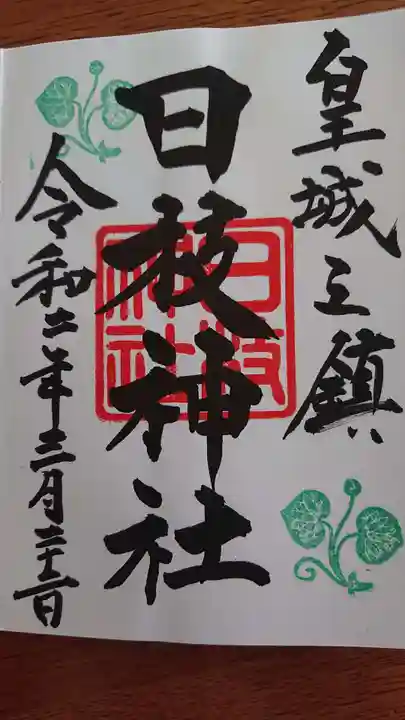 皇城之鎮
日枝神社
日枝
神社
令和二年三月二十二日